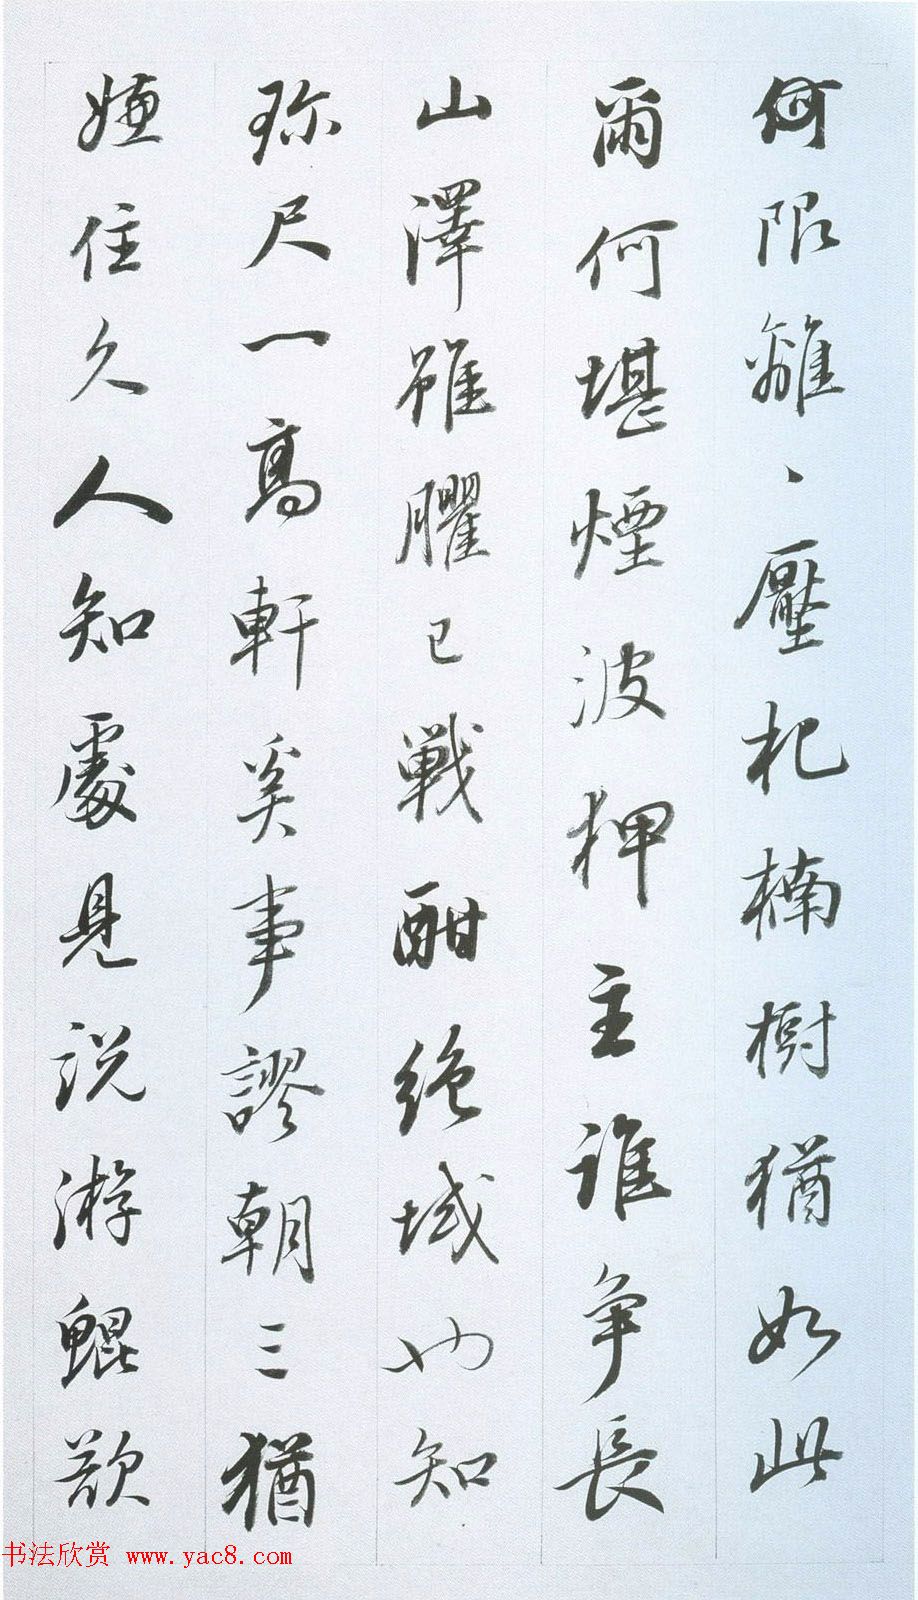 何限離、壓杞楠樹猶如此
爾何堪煙波狎主誰争長
山澤雖臞已戰酣絶域也知
珎尺一高軒奚事謬朝三猶
嫌住久人知處見説游鯤欲
书法欣赏 www.yac8.com